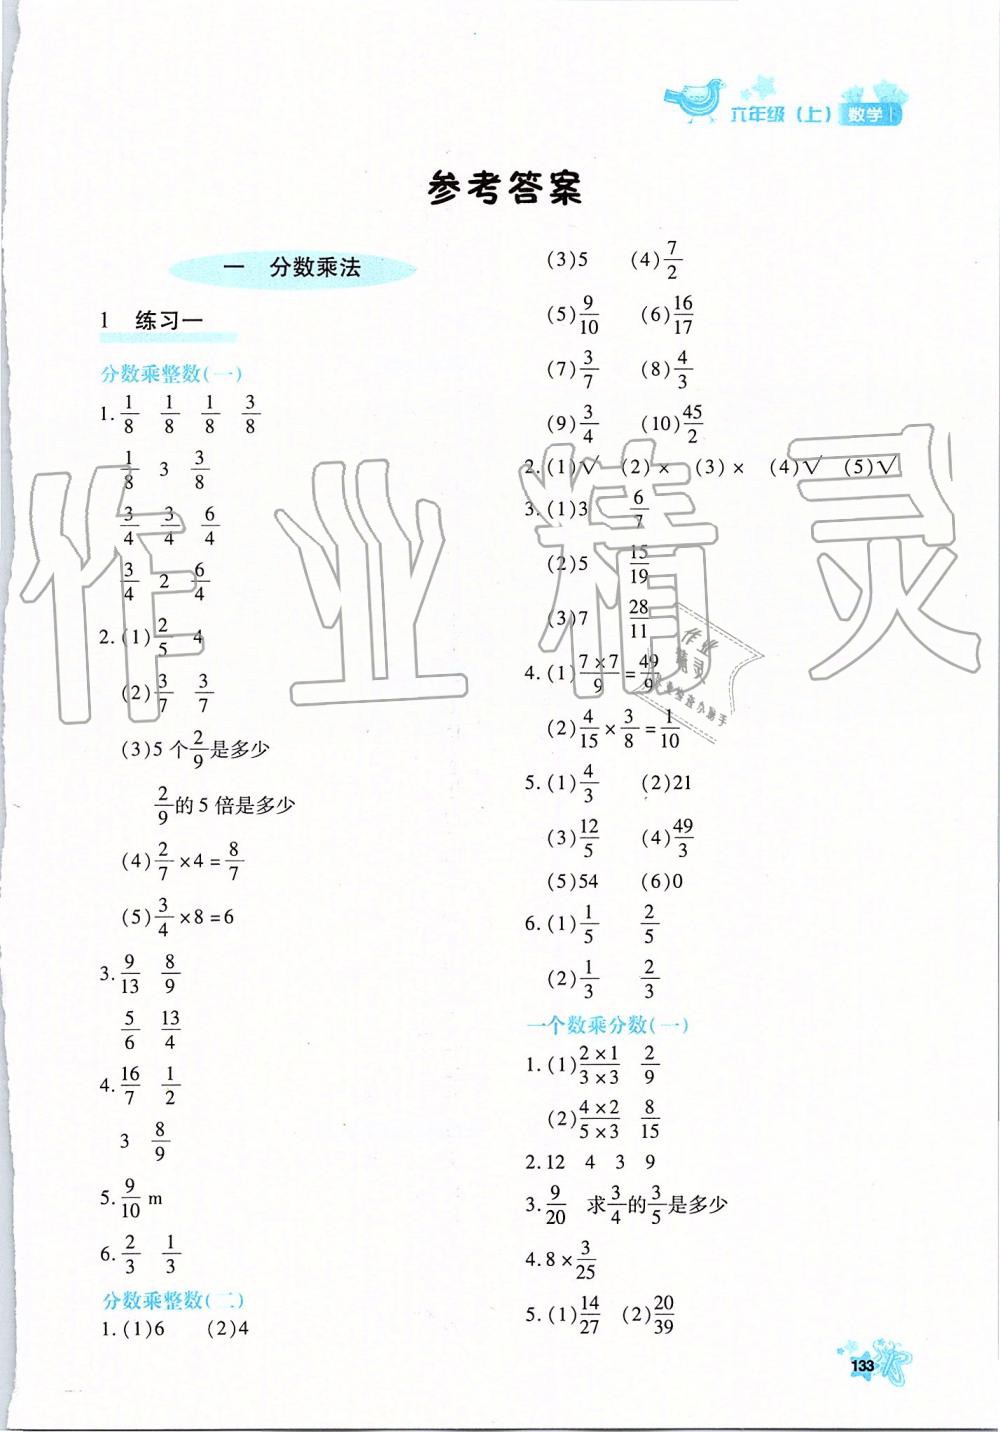 六年级（上） 数学
参考答案
一 分数乘法
1 练习一
分数乘整数(一)
1. 1/8 1/8 1/8 3/8
1/8 3 3/8
3/4 3/4 6/4
3/4 2 6/4
2.(1) 2/5 4
(2) 3/7 3/7
(3)5个2/9是多少
2/9的5倍是多少
(4) 2/7×4=8/7
(5) 3/4×8=6
3. 9/13 8/9
5/6 13/4
4. 16/7 1/2
3 8/9
5. 9/10 m
6. 2/3 1/3
分数乘整数(二)
1.(1)6 (2)4
(3)5 (4)7/2
(5)9/10 (6)16/17
(7)3/7 (8)4/3
(9)3/4 (10)45/2
2.(1)√ (2)× (3)× (4)√ (5)√
3.(1)3 6/7
(2)5 15/19
(3)7 28/11
4.(1) 7×7/9=49/9
(2) 4/15×3/8=1/10
5.(1)4/3 (2)21
(3)12/5 (4)49/3
(5)54 (6)0
6.(1)1/5 2/5
(2)1/3 2/3
一个数乘分数(一)
1.(1) 2×1/3×3 2/9
(2) 4×2/5×3 8/15
2.12 4 3 9
3. 9/20 求3/4的3/5是多少
4.8×3/25
5.(1)14/27 (2)20/39
133
作业精灵
作业
精灵